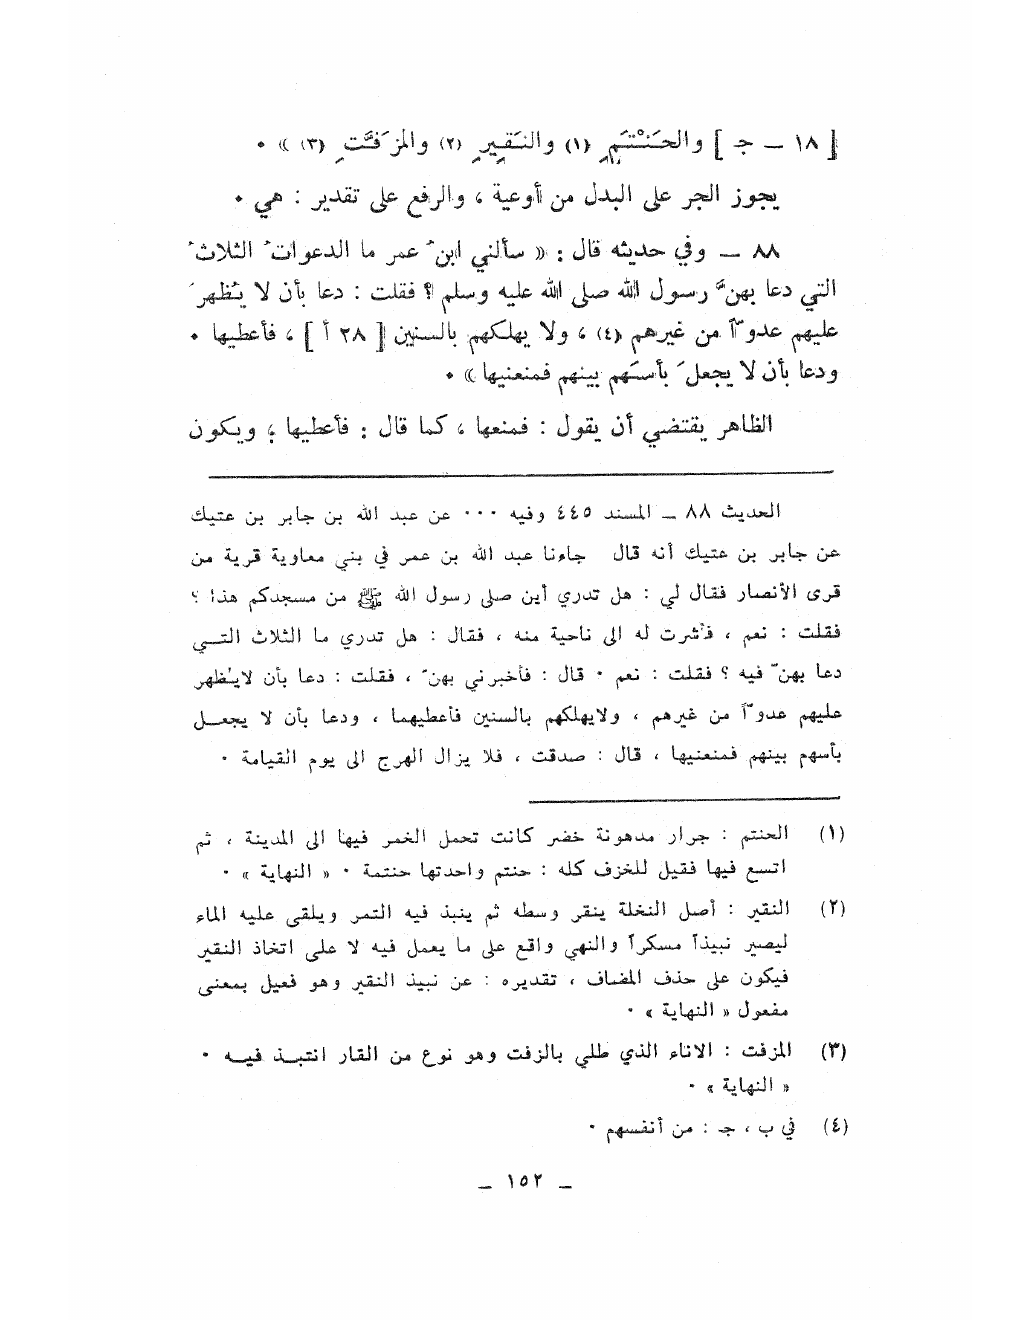 [ ١٨ ــ جـ ] والحَنْتَمِ (١) والنَّقِيرِ (٢) والمزَفَّتِ (٣) » ٠
يجوز الجر على البدل من أوعية ، والرفع على تقدير : هي ٠
٨٨ ــ وفي حديثه قال : « سألني ابنُ عمر ما الدعواتُ الثلاثُ
التي دعا بهنَّ رسول الله صلى الله عليه وسلم ؟ فقلت : دعا بأن لا يُظهرَ
عليهم عدوّاً من غيرهم (٤) ، ولا يهلكهم بالسنين [ ٢٨ أ ] ، فأعطيها ٠
ودعا بأن لا يجعلَ بأسَهم بينهم فمنعنيها » ٠
الظاهر يقتضي أن يقول : فمنعها ، كما قال : فأعطيها ؛ ويكون
الحديث ٨٨ ــ المسند ٤٤٥ وفيه ٠٠٠ عن عبد الله بن جابر بن عتيك
عن جابر بن عتيك أنه قال جاءنا عبد الله بن عمر في بني معاوية قرية من
قرى الأنصار فقال لي : هل تدري أين صلى رسول الله ﷺ من مسجدكم هذا ؟
فقلت : نعم ، فأشرت له الى ناحية منه ، فقال : هل تدري ما الثلاث التــي
دعا بهنّ فيه ؟ فقلت : نعم ٠ قال : فأخبرني بهنّ ، فقلت : دعا بأن لايُظهر
عليهم عدوّاً من غيرهم ، ولايهلكهم بالسنين فأعطيهما ، ودعا بأن لا يجعــل
بأسهم بينهم فمنعنيها ، قال : صدقت ، فلا يزال الهرج الى يوم القيامة ٠
(١) الحنتم : جرار مدهونة خضر كانت تحمل الخمر فيها الى المدينة ، ثم
اتسع فيها فقيل للخزف كله : حنتم واحدتها حنتمة ٠ « النهاية » ٠
(٢) النقير : أصل النخلة ينقر وسطه ثم ينبذ فيه التمر ويلقى عليه الماء
ليصير نبيذاً مسكراً والنهي واقع على ما يعمل فيه لا على اتخاذ النقير
فيكون على حذف المضاف ، تقديره : عن نبيذ النقير وهو فعيل بمعنى
مفعول « النهاية » ٠
(٣) المزفت : الاناء الذي طلي بالزفت وهو نوع من القار انتبــذ فيــه ٠
« النهاية » ٠
(٤) في ب ، جـ : من أنفسهم ٠
ــ ١٥٢ ــ